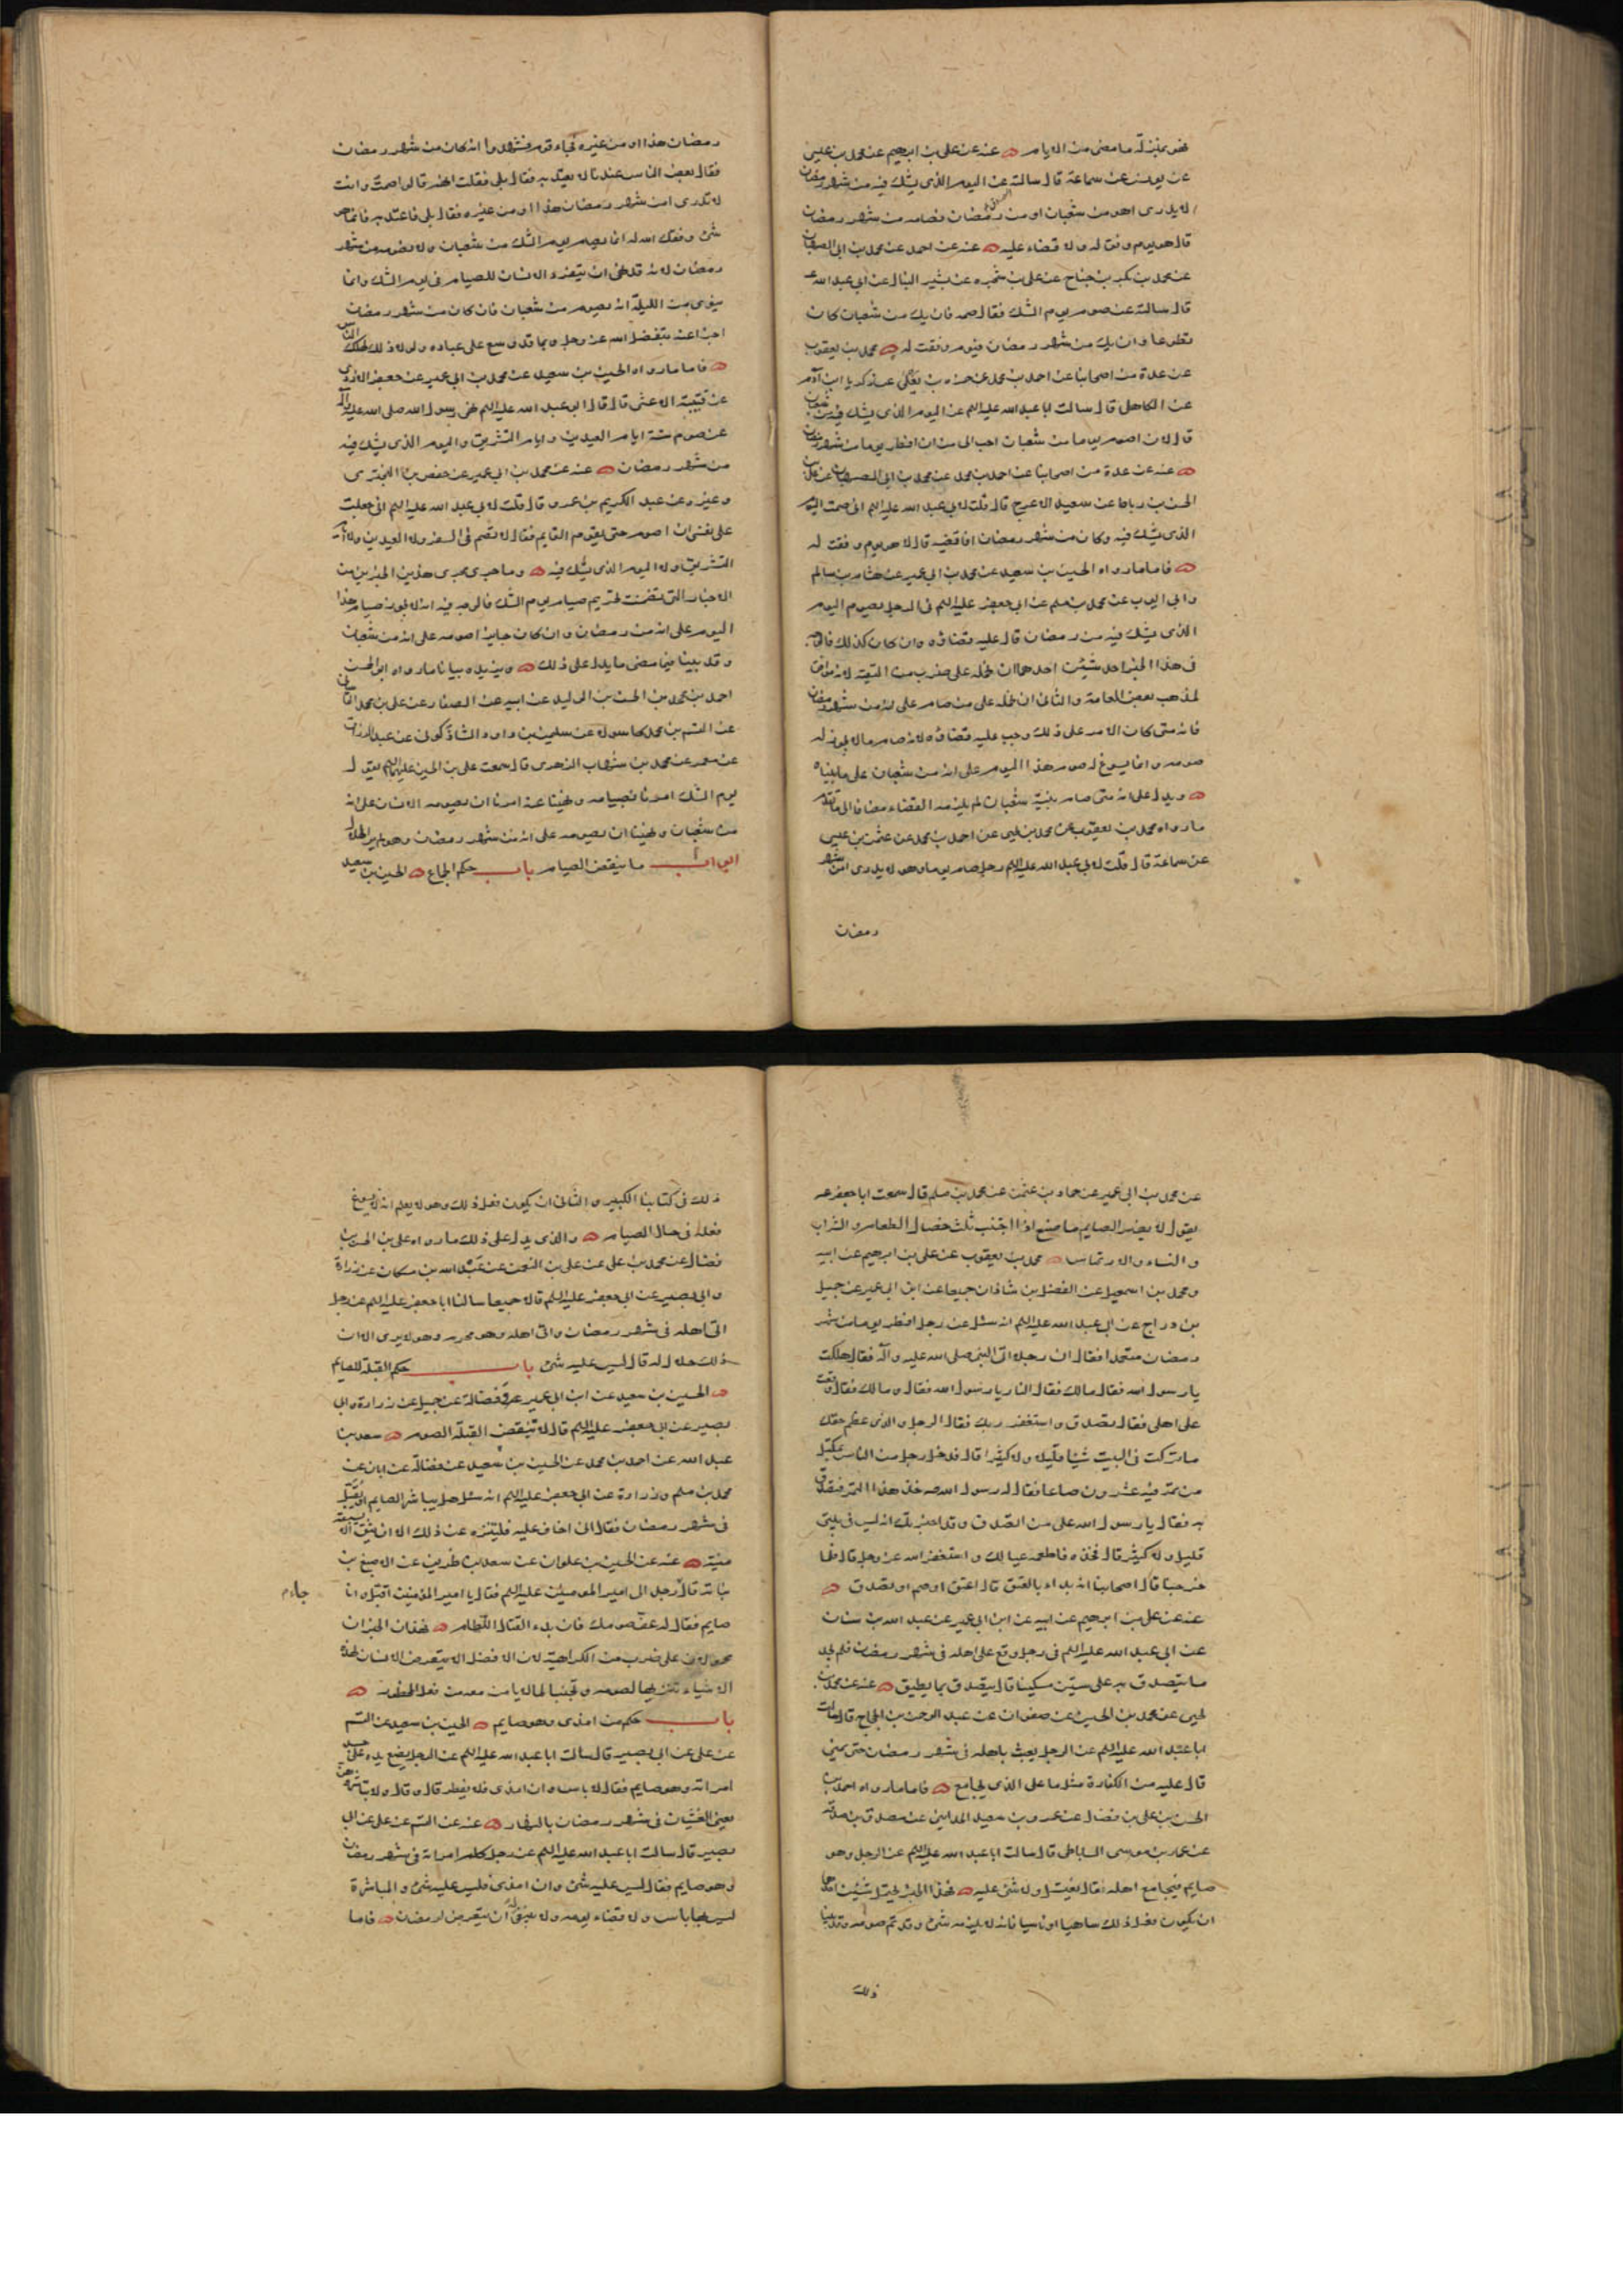 فهو بمنزلة ما مضى من الايام عنه عن على بن ابرهيم عن محمد بن عيسى
عن يونس عن سماعة قال سالته عن اليوم الذى يشك فيه من شهر رمضان
لا يدرى اهو من شعبان او من رمضان فصامه من شهر رمضان
قال هو يوم وفق له ولا قضاء عليه عنه عن احمد عن محمد بن ابى الصهبان
عن محمد بن بكر بن جناح عن على بن شجره عن بشير النبال عن ابى عبد الله ع
قال سالته عن صوم يوم الشك فقال صمه فان يك من شعبان كان
تطوعا وان يك من شهر رمضان فيوم وفقت له محمد بن يعقوب
عن عدة من اصحابنا عن احمد بن محمد عن حمزه بن يعلى عن زكريا ابن آدم
عن الكاهلى قال سالت ابا عبد الله عليه السلم عن اليوم الذى يشك فيه من شعبان
قال لان اصوم يوما من شعبان احب الى من ان افطر يوما من شهر رمضان
عنه عن عدة من اصحابنا عن احمد بن محمد عن محمد بن ابى الصهبان عن على بن
الحسن بن رباط عن سعيد الاعرج قال قلت لابى عبد الله عليه السلم انى صمت اليوم
الذى يشك فيه وكان من شهر رمضان افاقضيه قال لا هو يوم وفقت له
فاما ما رواه الحسين بن سعيد عن محمد بن ابى عمير عن هشام بن سالم
وابى ايوب عن محمد بن مسلم عن ابى جعفر عليه السلم فى الرجل يصوم اليوم
الذى يشك فيه من رمضان قال عليه قضاؤه وان كان كذلك فالوجه
فى هذا الخبر احد شيئين احدهما ان نحمله على ضرب من التقية لانه موافق
لمذهب بعض العامة والثانى ان نحمله على من صام على انه من شهر رمضان
فانه متى كان الامر على ذلك وجب عليه قضاؤه لانه صام ما لا يجوز له
صومه وانما يسوغ له صوم هذا اليوم على انه من شعبان على ما بيناه
ويدل على انه متى صام بنية شعبان لم يلزمه القضاء مضافا الى ما تقدم
ما رواه محمد بن يعقوب عن محمد بن يحيى عن احمد بن محمد عن عثمن بن عيسى
عن سماعة قال قلت لابى عبد الله عليه السلم رجل صام يوما وهو لا يدرى امن شهر
رمضان
رمضان هذا او من غيره فجاء قوم فشهدوا انه كان من شهر رمضان
فقال بعض الناس عندنا لا يعتد به فقال بلى فقلت انهم قالوا صمت وانت
لا تدرى امن شهر رمضان هذا او من غيره فقال بلى فاعتد به فانما هو
شئ وفقك الله له انما يصام يوم الشك من شعبان ولا تصومه من شهر
رمضان لانه قد نهى ان ينفرد الانسان للصيام فى يوم الشك وانما
ينوى من الليلة انه يصوم من شعبان فان كان من شهر رمضان
اجزا عنه بتفضل الله عز وجل وبما قد وسع على عباده ولولا ذلك لهلك الناس
فاما ما رواه الحسين بن سعيد عن محمد بن ابى عمير عن جعفر الازدى
عن قتيبة الاعشى قال قال ابو عبد الله عليه السلم نهى رسول الله صلى الله عليه وآله
عن صوم ستة ايام العيدين وايام التشريق واليوم الذى يشك فيه
من شهر رمضان عنه عن محمد بن ابى عمير عن حفص بن البخترى
وغيره عن عبد الكريم بن عمرو قال قلت لابى عبد الله عليه السلم انى جعلت
على نفسى ان اصوم حتى يقوم القايم فقال لا تصم فى السفر ولا العيدين ولا ايام
التشريق ولا اليوم الذى يشك فيه وما جرى مجرى هذين الخبرين من
الاخبار التى تضمنت تحريم صيام يوم الشك فالوجه فيه انه لا يجوز صيام هذا
اليوم على انه من رمضان وان كان جايزا صومه على انه من شعبان
وقد بينا فيما مضى ما يدل على ذلك ويزيده بيانا ما رواه ابو الحسن
احمد بن محمد بن الحسن بن الوليد عن ابيه عن الصفار عن على بن محمد القاسانى
عن القسم بن محمد كاسولا عن سليمن بن داود الشاذكونى عن عبد الرزاق
عن معمر عن محمد بن شهاب الزهرى قال سمعت على بن الحسين عليهما السلم يقول
يوم الشك امرنا بصيامه ونهينا عنه امرنا ان يصومه الانسان على انه
من شعبان ونهينا ان يصومه على انه من شهر رمضان وهو لم ير الهلال
ابواب ما ينقض الصيام باب حكم الجماع الحسين بن سعيد
عن محمد بن ابى عمير عن حماد بن عثمن عن محمد بن مسلم قال سمعت ابا جعفر ع
يقول لا يضر الصايم ما صنع اذا اجتنب ثلث خصال الطعام والشراب
والنساء والارتماس محمد بن يعقوب عن على بن ابرهيم عن ابيه
ومحمد بن اسمعيل عن الفضل بن شاذان جميعا عن ابن ابى عمير عن جميل
بن دراج عن ابى عبد الله عليه السلم انه سئل عن رجل افطر يوما من شهر
رمضان متعمدا فقال ان رجلا اتى النبى صلى الله عليه وآله فقال هلكت
يا رسول الله فقال مالك فقال النار يا رسول الله فقال ومالك فقال وقعت
على اهلى فقال تصدق واستغفر ربك فقال الرجل والذى عظم حقك
ما تركت فى البيت شيئا قليلا ولا كثيرا قال فدخل رجل من الناس بمكتل
من تمر فيه عشرون صاعا فقال له رسول الله ص خذ هذا التمر فتصدق
به فقال يا رسول الله على من اتصدق وقد اخبرتك انه ليس فى بيتى
قليل ولا كثير قال فخذه فاطعمه عيالك واستغفر الله عز وجل قال فلما
خرجنا قال اصحابنا انه بدا بالعتق قال اعتق او صم او تصدق
عنه عن على بن ابرهيم عن ابيه عن ابن ابى عمير عن عبد الله بن سنان
عن ابى عبد الله عليه السلم فى رجل وقع على اهله فى شهر رمضان فلم يجد
ما يتصدق به على ستين مسكينا قال يتصدق بما يطيق عنه عن محمد بن
يحيى عن محمد بن الحسين عن صفوان عن عبد الرحمن بن الحجاج قال سالت
ابا عبد الله عليه السلم عن الرجل يعبث باهله فى شهر رمضان حتى يمنى
قال عليه من الكفارة مثل ما على الذى يجامع فاما ما رواه احمد بن
الحسن بن على بن فضال عن عمرو بن سعيد المداينى عن مصدق بن صدقة
عن عمار بن موسى الساباطى قال سالت ابا عبد الله عليه السلم عن الرجل وهو
صايم فيجامع اهله فقال يغتسل ولا شئ عليه فهذا الخبر يحتمل شيئين احدهما
ان يكون فعل ذلك ساهيا او ناسيا فانه لا يلزمه شئ وقد تم صومه وقد بينا
ذلك
ذلك فى كتابنا الكبير والثانى ان يكون فعل ذلك وهو لا يعلم انه لا يسوغ
فعله فى حال الصيام والذى يدل على ذلك ما رواه على بن الحسن بن
فضال عن محمد بن على عن على بن النعمن عن عبد الله بن مسكان عن زرارة
وابى بصير عن ابى جعفر عليه السلم قالا جميعا سالنا ابا جعفر عليه السلم عن رجل
اتى اهله فى شهر رمضان واتى اهله وهو محرم وهو لا يرى الا ان
ذلك حلال له قال ليس عليه شئ باب حكم القبلة للصايم
الحسين بن سعيد عن ابن ابى عمير عن فضالة عن جميل عن زرارة وابى
بصير عن ابى جعفر عليه السلم قال لا تنقض القبلة الصوم سعد بن
عبد الله عن احمد بن محمد عن الحسين بن سعيد عن فضالة عن ابان عن
محمد بن مسلم وزرارة عن ابى جعفر عليه السلم انه سئل هل يباشر الصايم او يقبل
فى شهر رمضان فقال انى اخاف عليه فليتنزه عن ذلك الا ان يثق الا يسبقه
منيه عنه عن الحسين بن علوان عن سعد بن طريف عن الاصبغ بن
نباتة قال رجل الى امير المومنين عليه السلم فقال يا امير المؤمنين اقبل وانا
جاءم
صايم فقال له عف صومك فان بدء القتال اللطام فهذان الخبران
محمولان على ضرب من الكراهية لان الافضل الا يتعرض الانسان لهذه
الاشياء تنزيها لصومه وتجنبا لما لا يامن معه من فعل المحظور
باب حكم من امذى وهو صايم الحسين بن سعيد عن القسم
عن على عن ابى بصير قال سالت ابا عبد الله عليه السلم عن الرجل يضع يده على جسد
امراته وهو صايم فقال لا باس وان امذى فلا يفطر قال وقال ولا تباشروهن
يعنى الغشيان فى شهر رمضان بالنهار عنه عن القسم عن على عن ابى
بصير قال سالت ابا عبد الله عليه السلم عن رجل كلم امراته فى شهر رمضان
وهو صايم فقال ليس عليه شئ وان امذى فليس عليه شئ والمباشرة
ليس بها باس ولا قضاء يومه ولا ينبغى له ان يتعرض لرمضان فاما